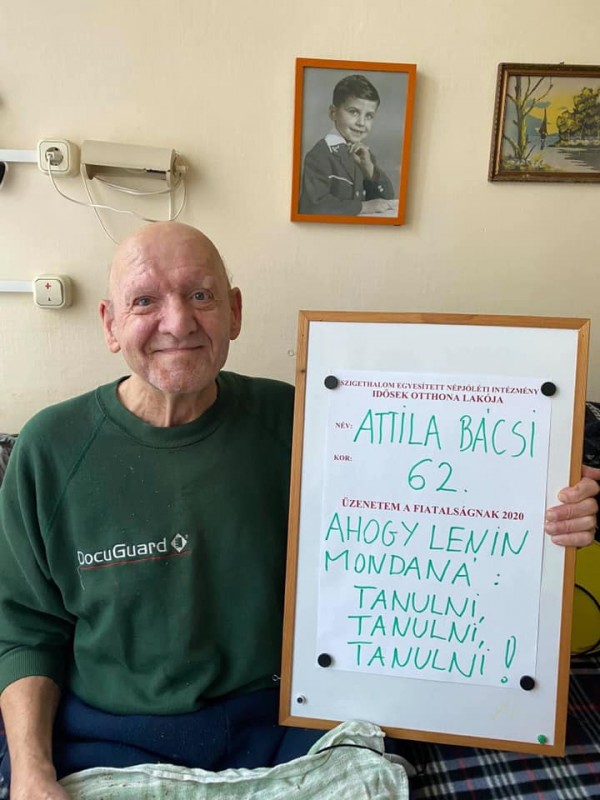 SZIGETHALOM EGYESÍTETT NÉPJÓLÉTI INTÉZMÉNY
IDŐSEK OTTHONA LAKÓJA
NÉV: ATTILA BÁCSI
KOR:
62.
ÜZENETEM A FIATALSÁGNAK 2020
AHOGY LENIN
MONDANÁ :
TANULNI,
TANULNI,
TANULNI !
DocuGuard